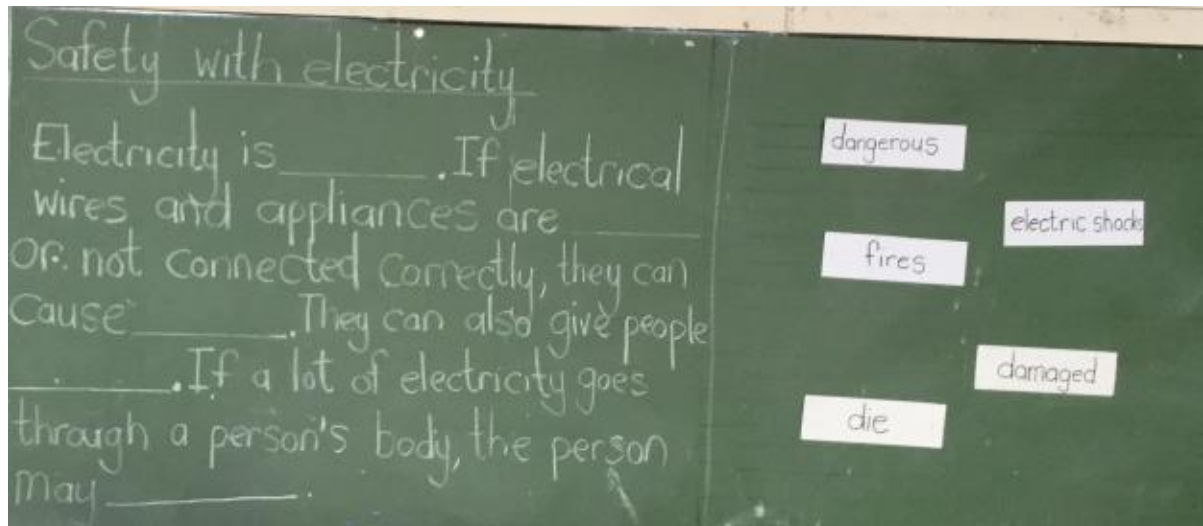 Safety with electricity
Electricity is ________. If electrical
wires and appliances are ________
or not connected correctly, they can
cause ________. They can also give people
________. If a lot of electricity goes
through a person's body, the person
may ________.
dangerous
electric shocks
fires
damaged
die